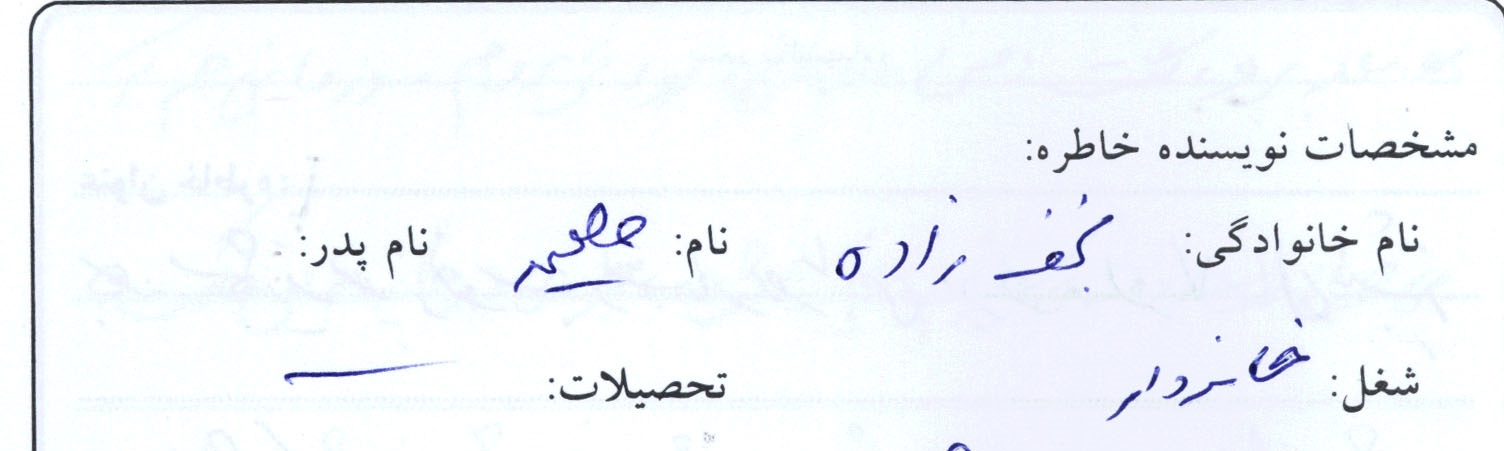 مشخصات نویسنده خاطره:
نام خانوادگی: نجف زاده نام: نام پدر:
شغل: خانه‌دار تحصیلات: —